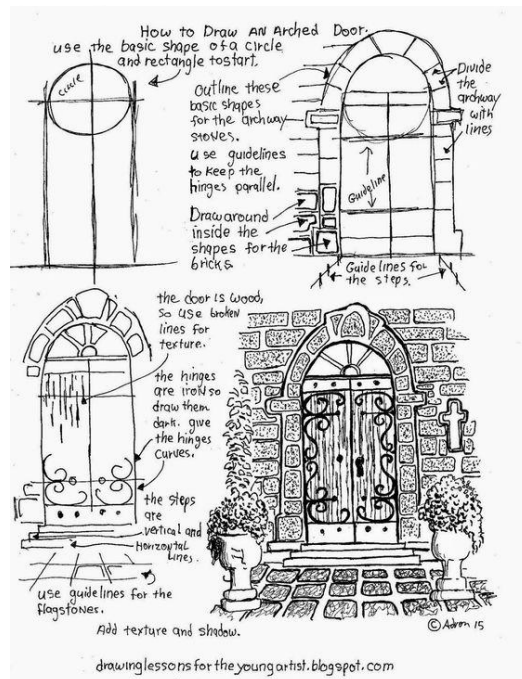 How to Draw An Arched Door.
use the basic shape of a circle
and rectangle to start.
Circle
Outline these
basic shapes
for the archway
stones.
use guidelines
to keep the
hinges parallel.
Draw around
inside the
shapes for the
bricks
Divide
the
archway
with
lines
Guideline
Guide lines for
the steps.
the door is wood,
so use broken
lines for
texture.
the hinges
are iron so
draw them
dark. give
the hinges
curves.
the steps
are
vertical and
Horizontal
Lines.
use guidelines for the
flagstones.
Add texture and shadow.
© Adron 15
drawinglessonsfortheyoungartist.blogspot.com